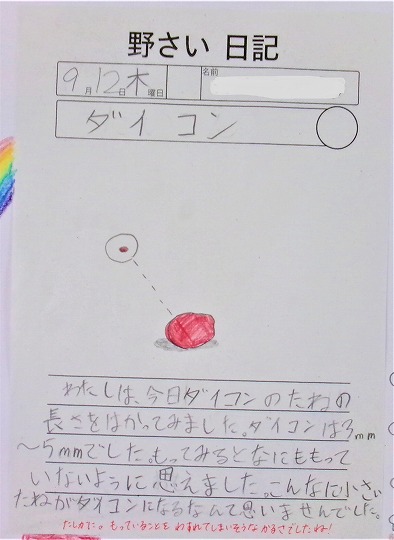 野さい 日記
9月12日木曜日 名前
ダイコン
わたしは、今日ダイコンのたねの
長さをはかってみました。ダイコンは3mm
〜5mmでした。もってみるとなにももって
いないように思えました。こんなに小さい
たねがダイコンになるなんて思いませんでした。
たしかに。もっていることを わすれてしまいそうな かるさでしたね!